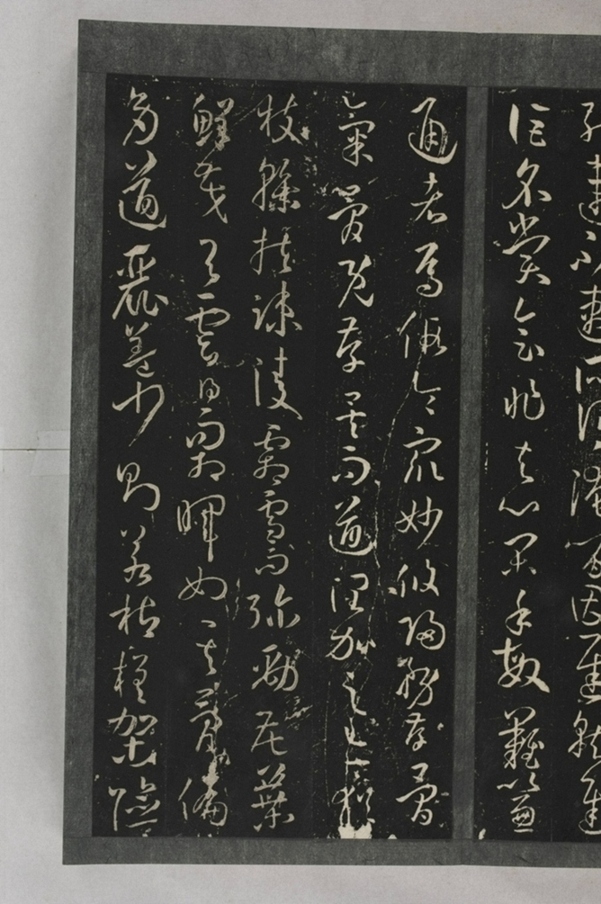 能速不速所謂淹留因遲就遲
詎名賞會非夫心閑手敏難以兼
通者焉假令眾妙攸歸務存骨
氣骨既存矣而遒潤加之亦猶
枝幹扶疏凌霜雪而彌勁花葉
鮮茂與雲日而相暉如其骨力偏
多遒麗蓋少則若枯槎架險